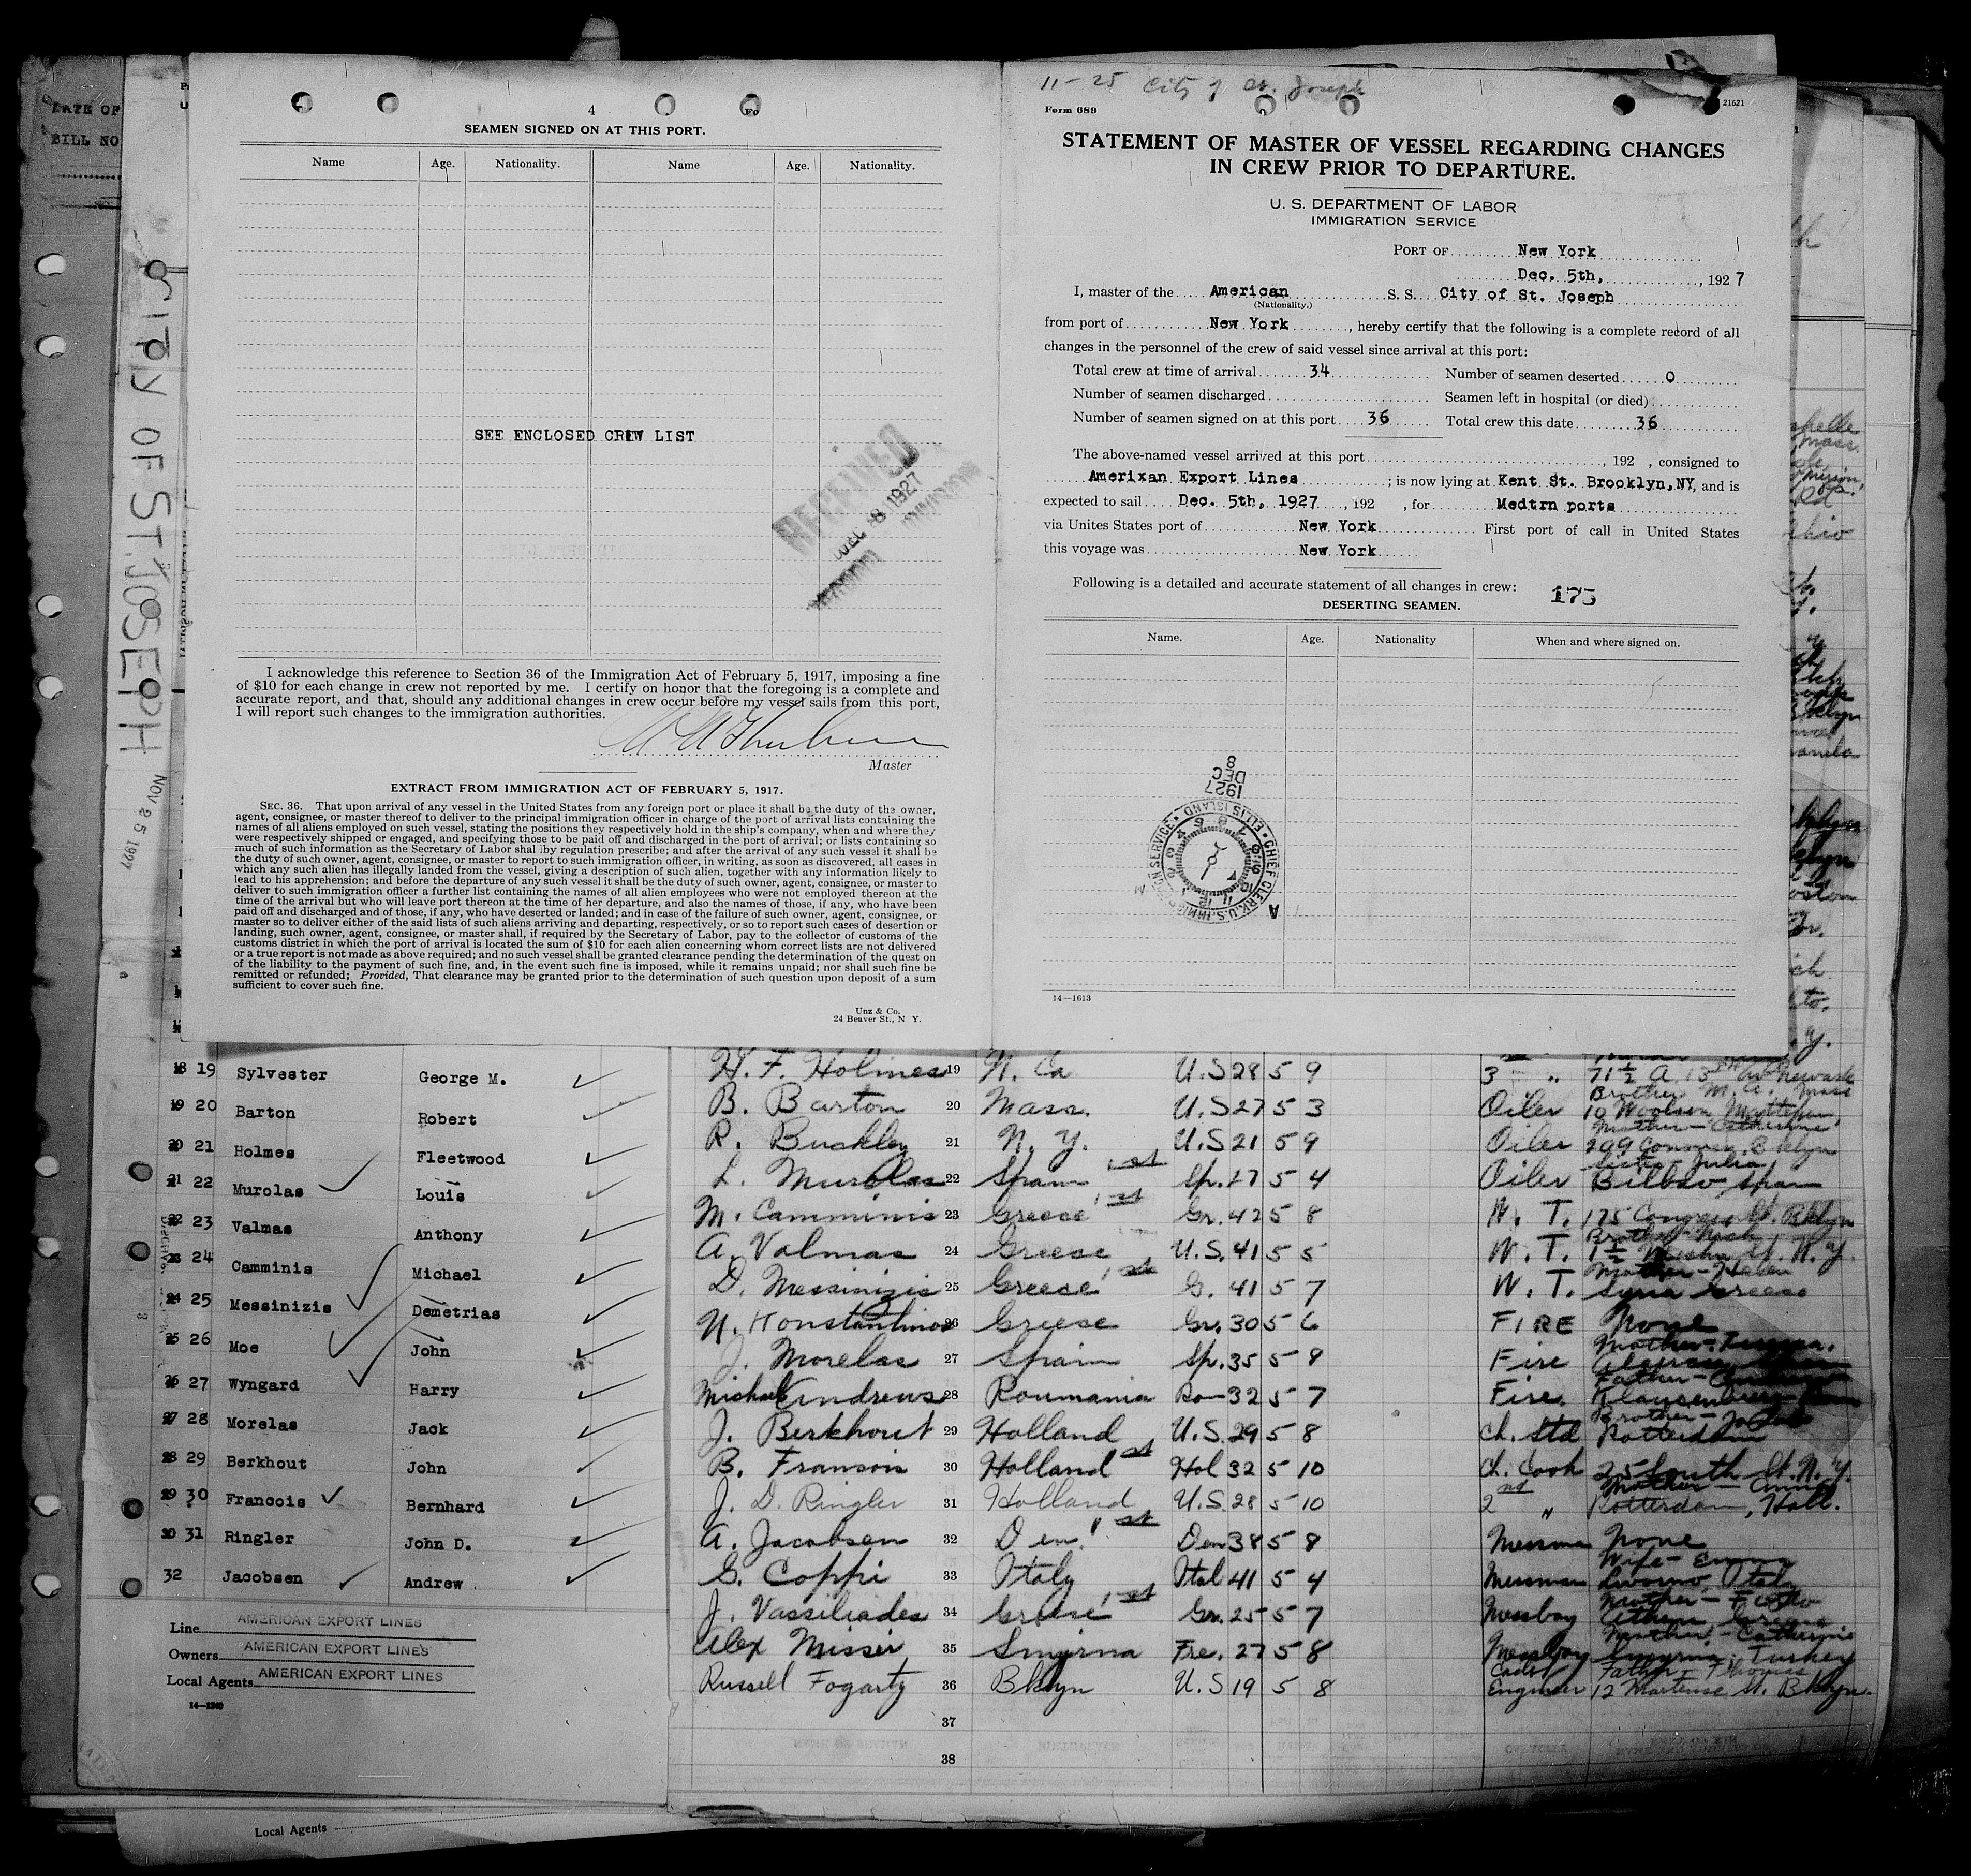 4
SEAMEN SIGNED ON AT THIS PORT.
Name Age. Nationality. Name Age. Nationality.
SEE ENCLOSED CREW LIST
RECEIVED
DEC -8 1927
I acknowledge this reference to Section 36 of the Immigration Act of February 5, 1917, imposing a fine
of $10 for each change in crew not reported by me. I certify on honor that the foregoing is a complete and
accurate report, and that, should any additional changes in crew occur before my vessel sails from this port,
I will report such changes to the immigration authorities.
Master
EXTRACT FROM IMMIGRATION ACT OF FEBRUARY 5, 1917.
SEC. 36. That upon arrival of any vessel in the United States from any foreign port or place it shall be the duty of the owner,
agent, consignee, or master thereof to deliver to the principal immigration officer in charge of the port of arrival lists containing the
names of all aliens employed on such vessel, stating the positions they respectively hold in the ship's company, when and where they
were respectively shipped or engaged, and specifying those to be paid off and discharged in the port of arrival; or lists containing so
much of such information as the Secretary of Labor shal by regulation prescribe; and after the arrival of any such vessel it shall be
the duty of such owner, agent, consignee, or master to report to such immigration officer, in writing, as soon as discovered, all cases in
which any such alien has illegally landed from the vessel, giving a description of such alien, together with any information likely to
lead to his apprehension; and before the departure of any such vessel it shall be the duty of such owner, agent, consignee, or master to
deliver to such immigration officer a further list containing the names of all alien employees who were not employed thereon at the
time of the arrival but who will leave port thereon at the time of her departure, and also the names of those, if any, who have been
paid off and discharged and of those, if any, who have deserted or landed; and in case of the failure of such owner, agent, consignee, or
master so to deliver either of the said lists of such aliens arriving and departing, respectively, or so to report such cases of desertion or
landing, such owner, agent, consignee, or master shall, if required by the Secretary of Labor, pay to the collector of customs of the
customs district in which the port of arrival is located the sum of $10 for each alien concerning whom correct lists are not delivered
or a true report is not made as above required; and no such vessel shall be granted clearance pending the determination of the quest on
of the liability to the payment of such fine, and, in the event such fine is imposed, while it remains unpaid; nor shall such fine be
remitted or refunded; Provided, That clearance may be granted prior to the determination of such question upon deposit of a sum
sufficient to cover such fine.
Unz & Co.
24 Beaver St., N Y.
11-25 City of St. Joseph
Form 689
21621
STATEMENT OF MASTER OF VESSEL REGARDING CHANGES
IN CREW PRIOR TO DEPARTURE.
U. S. DEPARTMENT OF LABOR
IMMIGRATION SERVICE
PORT OF New York
Dec. 5th, , 1927
I, master of the American S. S. City of St. Joseph
(Nationality.)
from port of New York , hereby certify that the following is a complete record of all
changes in the personnel of the crew of said vessel since arrival at this port:
Total crew at time of arrival 34 Number of seamen deserted 0
Number of seamen discharged Seamen left in hospital (or died)
Number of seamen signed on at this port 36 Total crew this date 36
The above-named vessel arrived at this port , 192 , consigned to
Amerixan Export Lines ; is now lying at Kent St. Brooklyn,NY, and is
expected to sail Dec. 5th, 1927 , 192 , for Medtrn ports
via Unites States port of New York First port of call in United States
this voyage was New York
Following is a detailed and accurate statement of all changes in crew: 175
DESERTING SEAMEN.
Name. Age. Nationality When and where signed on.
1927
DEC
8
CHIEF CLERK, U.S. IMMIGRATION SERVICE ELLIS ISLAND
14—1613
DATE OF
BILL NO
CITY OF ST. JOSEPH
NOV 25 1927
18 19 Sylvester George M. H. F. Holmes 19 N. Ca U.S 28 5 9 3 "
19 20 Barton Robert B. Barton 20 Mass. U.S 27 5 3 Oiler 10 Woolson
20 21 Holmes Fleetwood R. Buckley 21 N. Y. U.S 21 5 9 Oiler 299
21 22 Murolas Louis L. Murolas 22 Spain 1st Sp. 27 5 4 Oiler Bilbao, Spain
22 23 Valmas Anthony M. Camminis 23 Greece 1st Gr. 42 5 8 W. T. 175 Congress St. Bklyn
23 24 Camminis Michael A. Valmas 24 Greese U.S. 41 5 5 W. T.
24 25 Messinizis Demetrias D. Messinizis 25 Greece 1st G. 41 5 7 W. T. Syria Greece
25 26 Moe John N. Konstantinos 26 Greese Gr. 30 5 6 FIRE None
26 27 Wyngard Harry J. Morelas 27 Spain Sp. 35 5 9 Fire
27 28 Morelas Jack Michael Andrews 28 Roumania Ro- 32 5 7 Fire.
28 29 Berkhout John J. Berkhout 29 Holland U.S. 29 5 8 Ch. Std Rotterdam
29 30 Francois Bernhard B. Fransois 30 Holland 1st Hol 32 5 10 Ch. Cook 25 South St. N.Y.
30 31 Ringler John D. J. D. Ringler 31 Holland U.S. 28 5 10 2nd " Rotterdam, Holl.
32 Jacobsen Andrew A. Jacobsen 32 Den. 1st Den 38 5 8 Messman None
G. Coppi 33 Italy Ital 41 5 4 Messman Livorno, Italy
J. Vassiliades 34 Greese 1st Gr. 25 5 7 Messboy Athens Greece
Alex Missir 35 Smyrna Fre. 27 5 8 Messboy Smyrna, Turkey
Russell Fogarty 36 Bklyn U.S 19 5 8 Cadet Engineer Father - Thomas 12 Martense St. Bklyn.
37
38
Line AMERICAN EXPORT LINES
Owners AMERICAN EXPORT LINES
Local Agents AMERICAN EXPORT LINES
14—1240
Local Agents